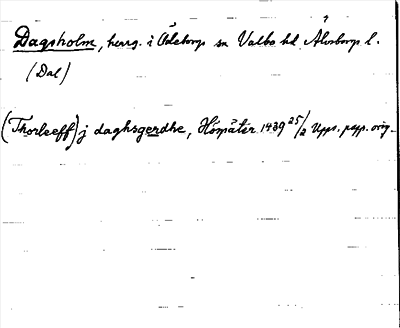 Dagsholm, herrg. i Ödeborgs sn Valbo hd Älvsborgs l.
(Dal)
(Thorleeff) j daghsgerdhe, Hömäter 1439 25/2 Upps. papp. orig.